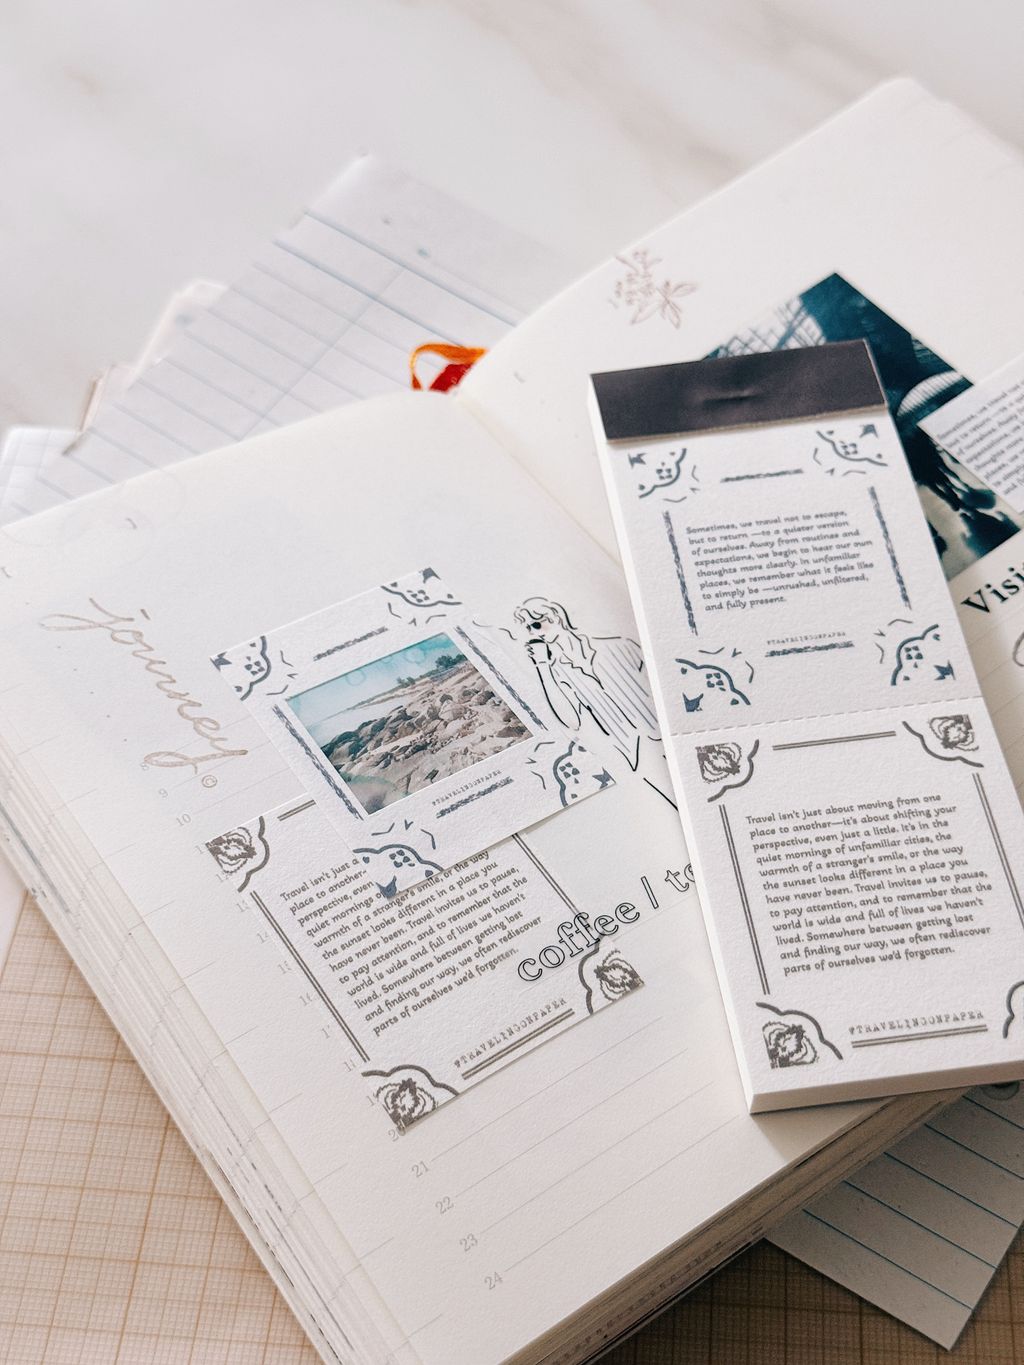 journey
8
9
10
13
14
21
22
23
24
#TRAVELINGONPAPER
Travel isn't just a
place to another-
perspective, even
quiet mornings o
warmth of a stranger's smile, or the way
the sunset looks different in a place you
have never been. Travel invites us to pause,
to pay attention, and to remember that the
world is wide and full of lives we haven't
lived. Somewhere between getting lost
and finding our way, we often rediscover
parts of ourselves we'd forgotten.
#TRAVELINGONPAPER
coffee / te
Sometimes, we travel not to escape,
but to return —to a quieter version
of ourselves. Away from routines and
expectations, we begin to hear our own
thoughts more clearly. In unfamiliar
places, we remember what it feels like
to simply be —unrushed, unfiltered,
and fully present.
#TRAVELINGONPAPER
Travel isn't just about moving from one
place to another—it's about shifting your
perspective, even just a little. It's in the
quiet mornings of unfamiliar cities, the
warmth of a stranger's smile, or the way
the sunset looks different in a place you
have never been. Travel invites us to pause,
to pay attention, and to remember that the
world is wide and full of lives we haven't
lived. Somewhere between getting lost
and finding our way, we often rediscover
parts of ourselves we'd forgotten.
#TRAVELINGONPAPER
Visi